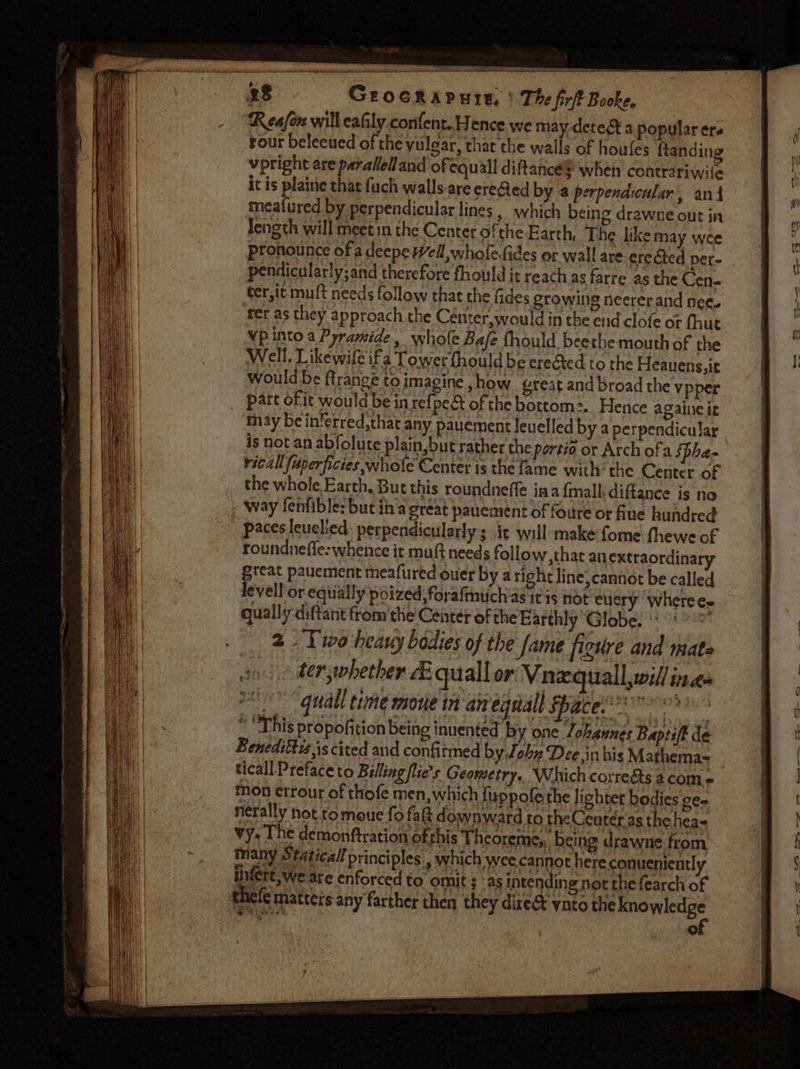 28 GEOGRAPHIE. The firſt Booke.
Reaſon will eaſily conſent. Hence we may detect a popular er-
rour beleeued of the vulgar, that the walls of houſes ſtanding
vpright are parallell and of equall diſtances when contrariwiſe
it is plaine that ſuch walls are erected by a perpendicular, and
meaſured by perpendicular lines, which being drawne out in
length will meet in the Center of the Earth, The like may wee
pronounce of a deepe Well, whoſe ſides or wall are erected per-
pendicularly; and therefore ſhould it reach as farre as the Cen-
ter, it muſt needs follow that the ſides growing neerer and nee-
rer as they approach the Center, would in the end cloſe or ſhut
vp into a Pyramide, whoſe Baſe ſhould bee the mouth of the
Well. Likewiſe if a Tower ſhould be erected to the Heauens, it
would be ſtrange to imagine, how great and broad the vpper
part of it would be in reſpect of the bottome. Hence againe it
may be inferred, that any pauement leuelled by a perpendicular
is not an abſolute plain, but rather the portiō or Arch of a ſphæ-
ricall ſuperficies, whoſe Center is the ſame with the Center of
the whole Earth. But this roundneſſe in a ſmall diſtance is no
way ſenſible: but in a great pauement of foure or fiue hundred
paces leuelled perpendicularly; it will make ſome ſhewe of
roundneſſe: whence it muſt needs follow, that an extraordinary
great pauement meaſured ouer by a right line, cannot be called
levell or equally poized, foraſmuch as it is not euery where e-
qually diſtant from the Center of the Earthly Globe.
2 Two heauy bodies of the ſame figure and mat-
ter, whether Æquall or Vnæquall, will in æ-
quall time moue in an equall ſpace.
This propoſition being inuented by one Iohannes Baptiſt de
Benedictis, is cited and confirmed by Iohn Dee, in his Mathema-
ticall Preface to Billingſlie's Geometry. Which corrects a com-
mon errour of thoſe men, which ſuppoſe the lighter bodies ge-
nerally not to moue ſo faſt downward to the Center as the hea-
vy. The demonſtration of this Theoreme, being drawne from
many Staticall principles, which wee cannot here conueniently
inſert, we are enforced to omit; as intending not the ſearch of
theſe matters any farther then they direct vnto the knowledge
of